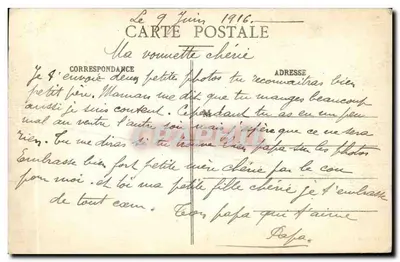 Le 9 Juin 1916.
CARTE POSTALE
Ma chérie
CORRESPONDANCE
ADRESSE
Je t'envoie deux petite photos tu reconnaitras bien
petit père. Maman me dit que tu manges beaucoup
aussi je suis content. Cependant tu as eu un peu
mal au ventre l'autre jour mais j'espère que ce ne sera
rien. Tu me diras si tu mon papa sur les photos
Embrasse bien fort petite mère chérie par le cou
pour moi. et toi ma petite fille chérie je t'embrasse
de tout cœur. Ton papa qui t'aime
Papa.